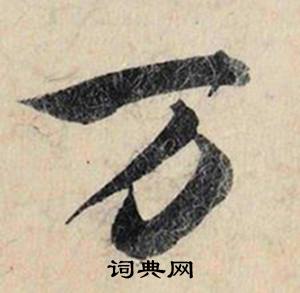 万
词典网